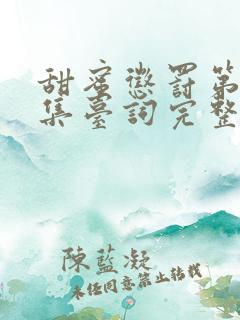 甜蜜懲罰第
集臺詞完整
陳藍凝
未经同意禁止转载